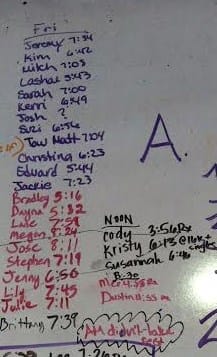 Fri
Jeremy 7:34
Kim 6:42
Mitch 7:03
Lashae 5:43
Sarah 7:00
Kerri 6:49
Josh ?
Suzi 6:56
Tow Matt 7:04
Christina 6:23
Edward 5:44
Jackie 7:23
Bradley 5:16
Dayna 5:32
Luke 7:59
Megan 8:24
Jose 8:11
Stephen 7:19
Jenny 6:50
Lily 7:45
Julie 7:11
Brittany 7:39
A.
NOON
Cody 3:56 Rx
Kristy 6:13 @
Susannah 6:46 singles
8:30
Dustin
AA didn't take
rest
7:26 Rx